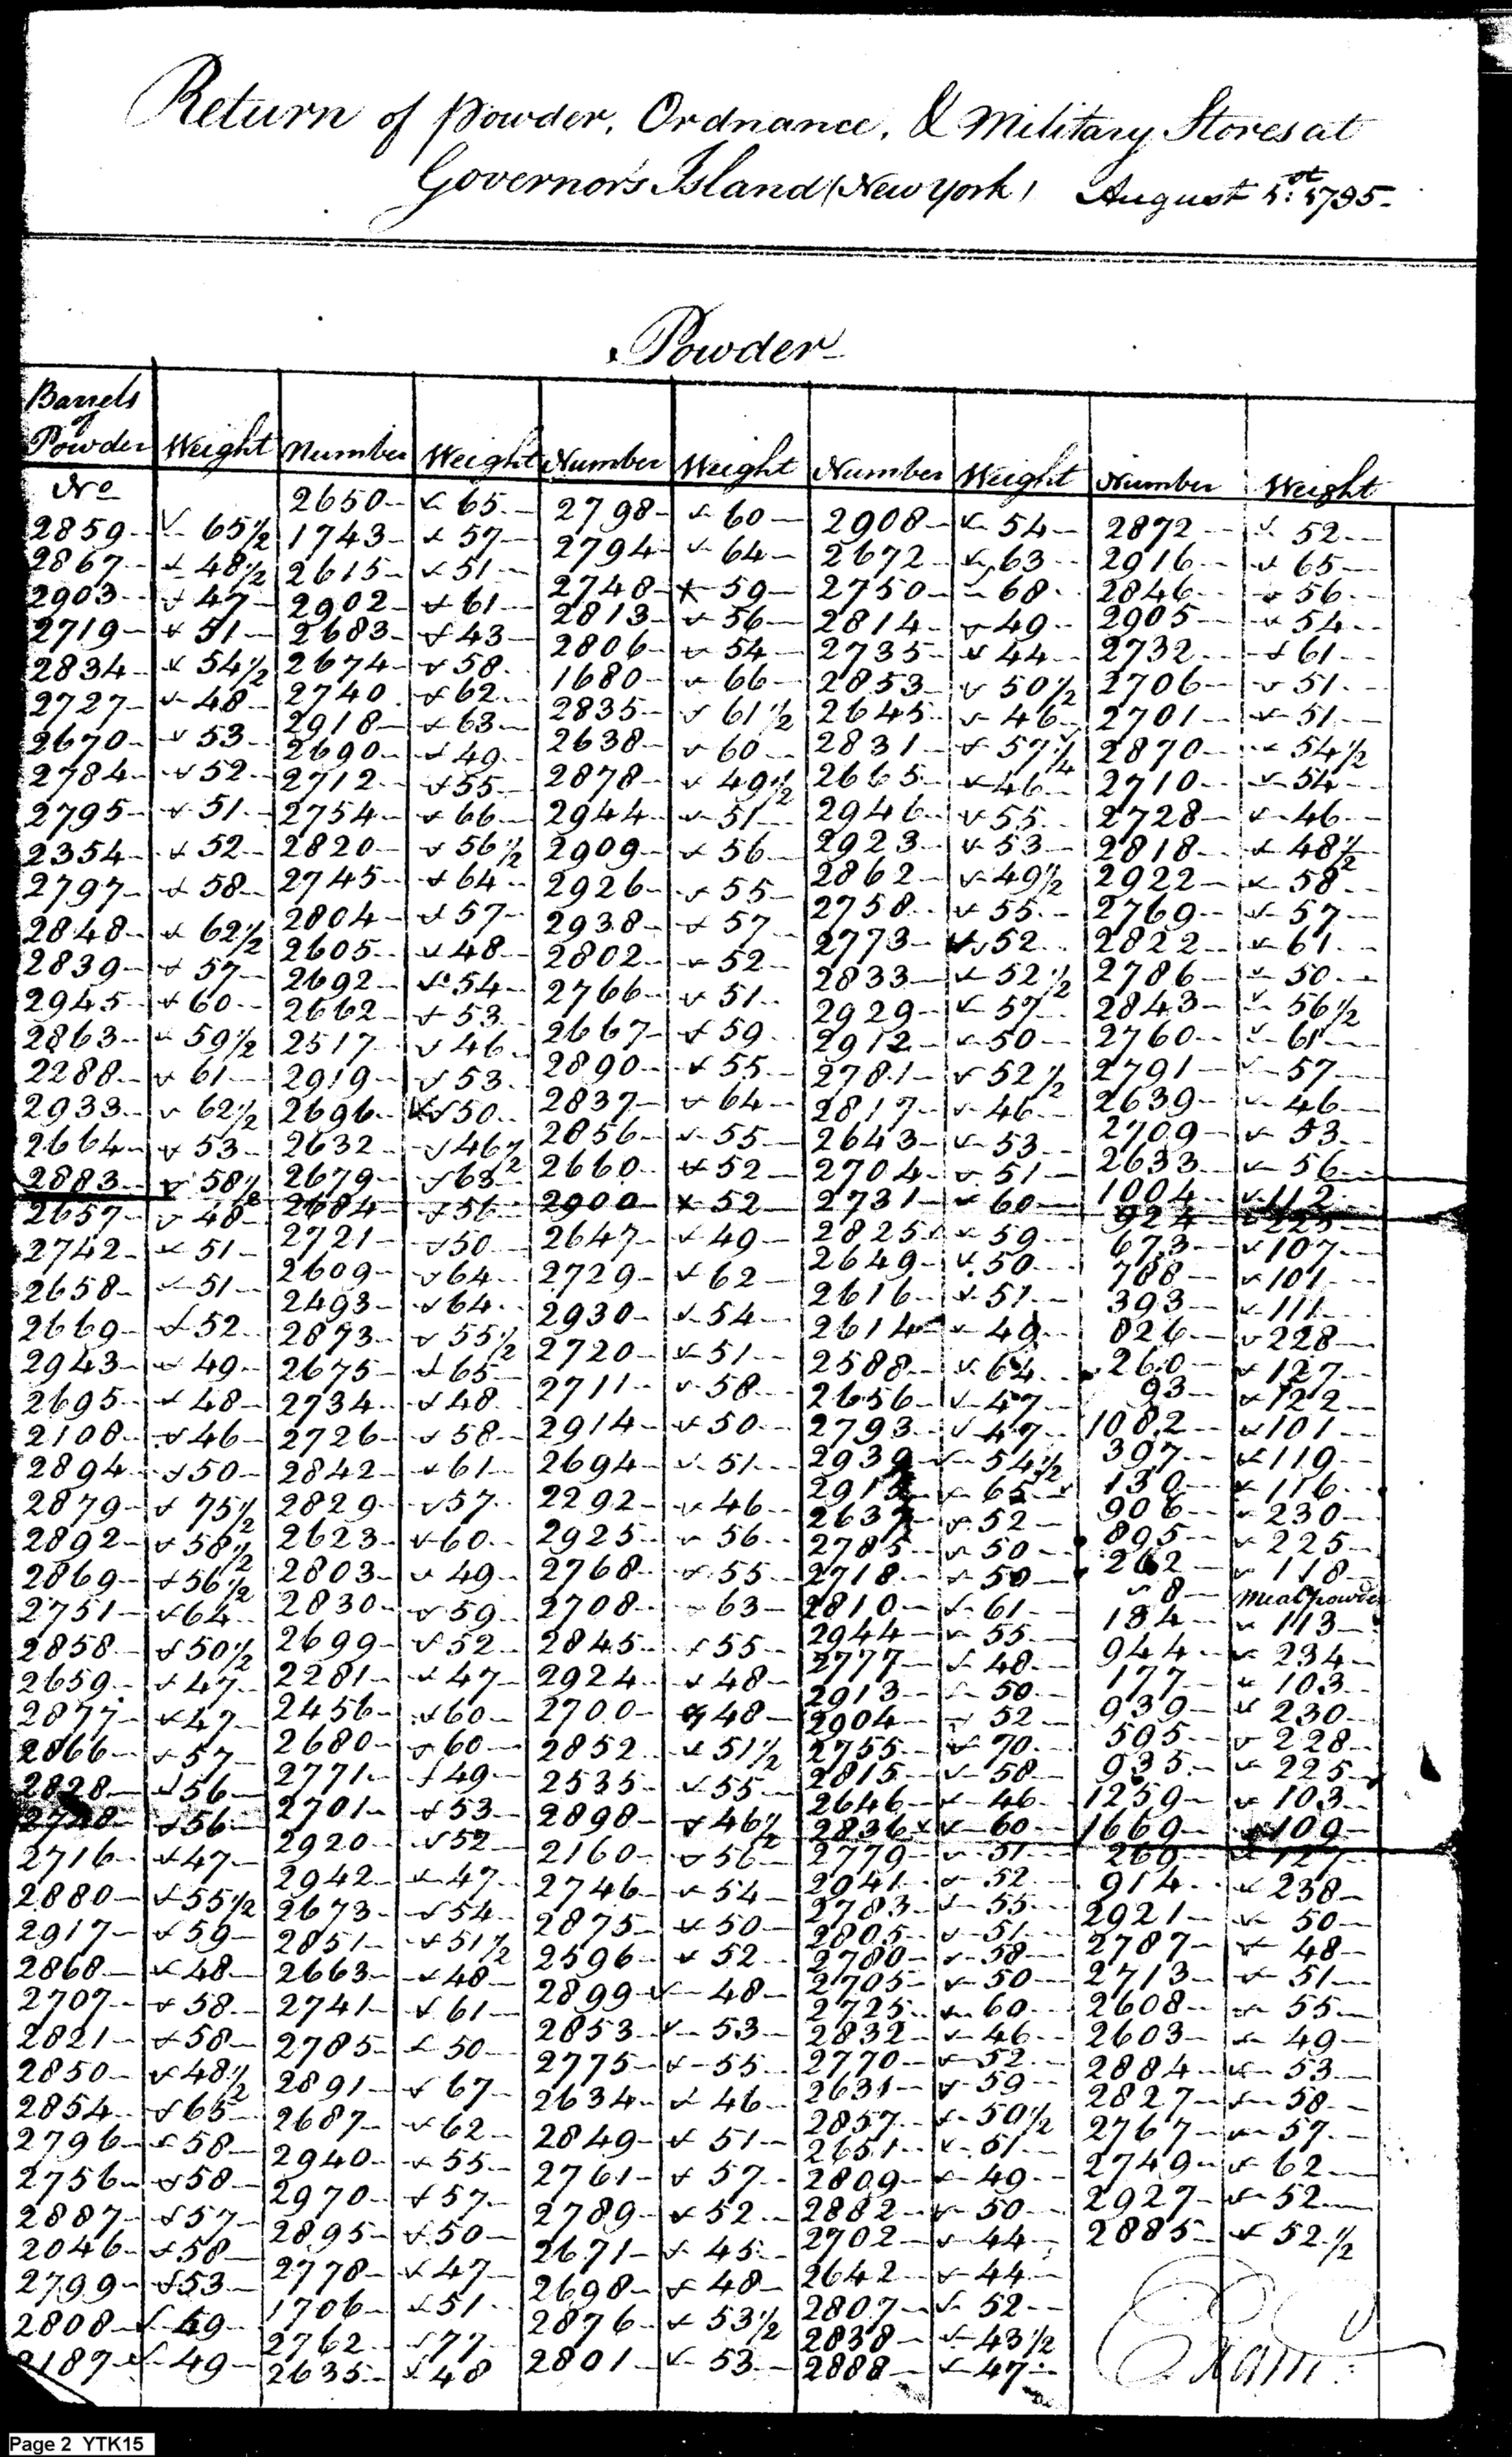 Return of Powder, Ordnance, & Military Stores at
Governor's Island (New York) August 1st: 1795-
Powder
Barrels of Powder Weight Number Weight Number Weight Number Weight Number Weight
No
2859 65 1/2
2867 48 1/2
2903 47
2719 51
2834 54 1/2
2727 48
2670 53
2784 52
2795 51
2354 52
2797 58
2848 62 1/2
2839 57
2945 60
2863 59 1/2
2288 61
2933 62 1/2
2664 53
2883 58 1/2
2657 48
2742 51
2658 51
2669 52
2943 49
2695 48
2108 46
2894 50
2879 75 1/2
2892 58 1/2
2869 56 1/2
2751 64
2858 50 1/2
2659 47
2877 47
2866 57
2828 56
56
2716 47
2880 55 1/2
2917 59
2868 48
2707 58
2821 58
2850 48 1/2
2854 65
2796 58
2756 58
2887 57
2046 58
2799 53
2808 49
2187 49
2650 65
1743 57
2615 51
2902 61
2683 43
2674 58
2740 62
2918 63
2690 49
2712 55
2754 66
2820 56 1/2
2745 64
2804 57
2605 48
2692 54
2662 53
2517 46
2919 53
2696 50
2632 46 1/2
2679 63
2684 56
2721 50
2609 64
2493 64
2873 55 1/2
2675 65
2734 48
2726 58
2842 61
2829 57
2623 60
2803 49
2830 59
2699 52
2281 47
2456 60
2680 60
2771 49
2701 53
2920 52
2942 47
2673 54
2851 51 1/2
2663 48
2741 61
2785 50
2891 67
2687 62
2940 55
2970 57
2895 50
2778 47
1706 51
2762 77
2635 48
2798 60
2794 64
2748 59
2813 56
2806 54
1680 66
2835 61 1/2
2638 60
2878 49 1/2
2944 51
2909 56
2926 55
2938 57
2802 52
2766 51
2667 59
2890 55
2837 64
2856 55
2660 52
2900 52
2647 49
2729 62
2930 54
2720 51
2711 58
2914 50
2694 51
2292 46
2925 56
2768 55
2708 63
2845 55
2924 48
2700 48
2852 51 1/2
2535 55
2898 46 1/2
2160 56
2746 54
2875 50
2596 52
2899 48
2853 53
2775 55
2634 46
2849 51
2761 57
2789 52
2671 45
2698 48
2876 53 1/2
2801 53
2908 54
2672 63
2750 68
2814 49
2735 44
2853 50 1/2
2645 46
2831 57 1/4
2665 46
2946 55
2923 53
2862 49 1/2
2758 55
2773 52
2833 52 1/2
2929 57
2912 50
2781 52 1/2
2817 46
2643 53
2704 51
2731 60
2825 59
2649 50
2616 51
2614 49
2588 64
2656 47
2793 47
2939 54 1/2
65
52
2785 50
2718 50
2810 61
2944 55
2777 48
2913 50
2904 52
2755 70
2815 58
2646 46
2836 60
2779 51
2941 52
2783 55
2805 51
2780 58
2705 50
2725 60
2832 46
2770 52
2631 59
2857 50 1/2
2651 51
2809 49
2882 50
2702 44
2642 44
2807 52
2838 43 1/2
2888 47
2872 52
2916 65
2846 56
2905 54
2732 61
2706 51
2701 51
2870 54 1/2
2710 54
2728 46
2818 48 1/2
2922 58
2769 57
2822 61
2786 50
2843 56 1/2
2760 61
2791 57
2639 46
2709 53
2633 56
1004 112
924 225
673 107
788 101
393 111
826 228
260 127
93 122
1082 101
397 119
130 116
906 230
895 225
262 118
8 Meal powder
184 113
944 234
177 103
939 230
595 228
935 225
1259 103
1669 109
269 127
914 238
2921 50
2787 48
2713 51
2608 55
2603 49
2884 53
2827 58
2767 57
2749 62
2927 52
2885 52 1/2
Exam:
Page 2 YTK15